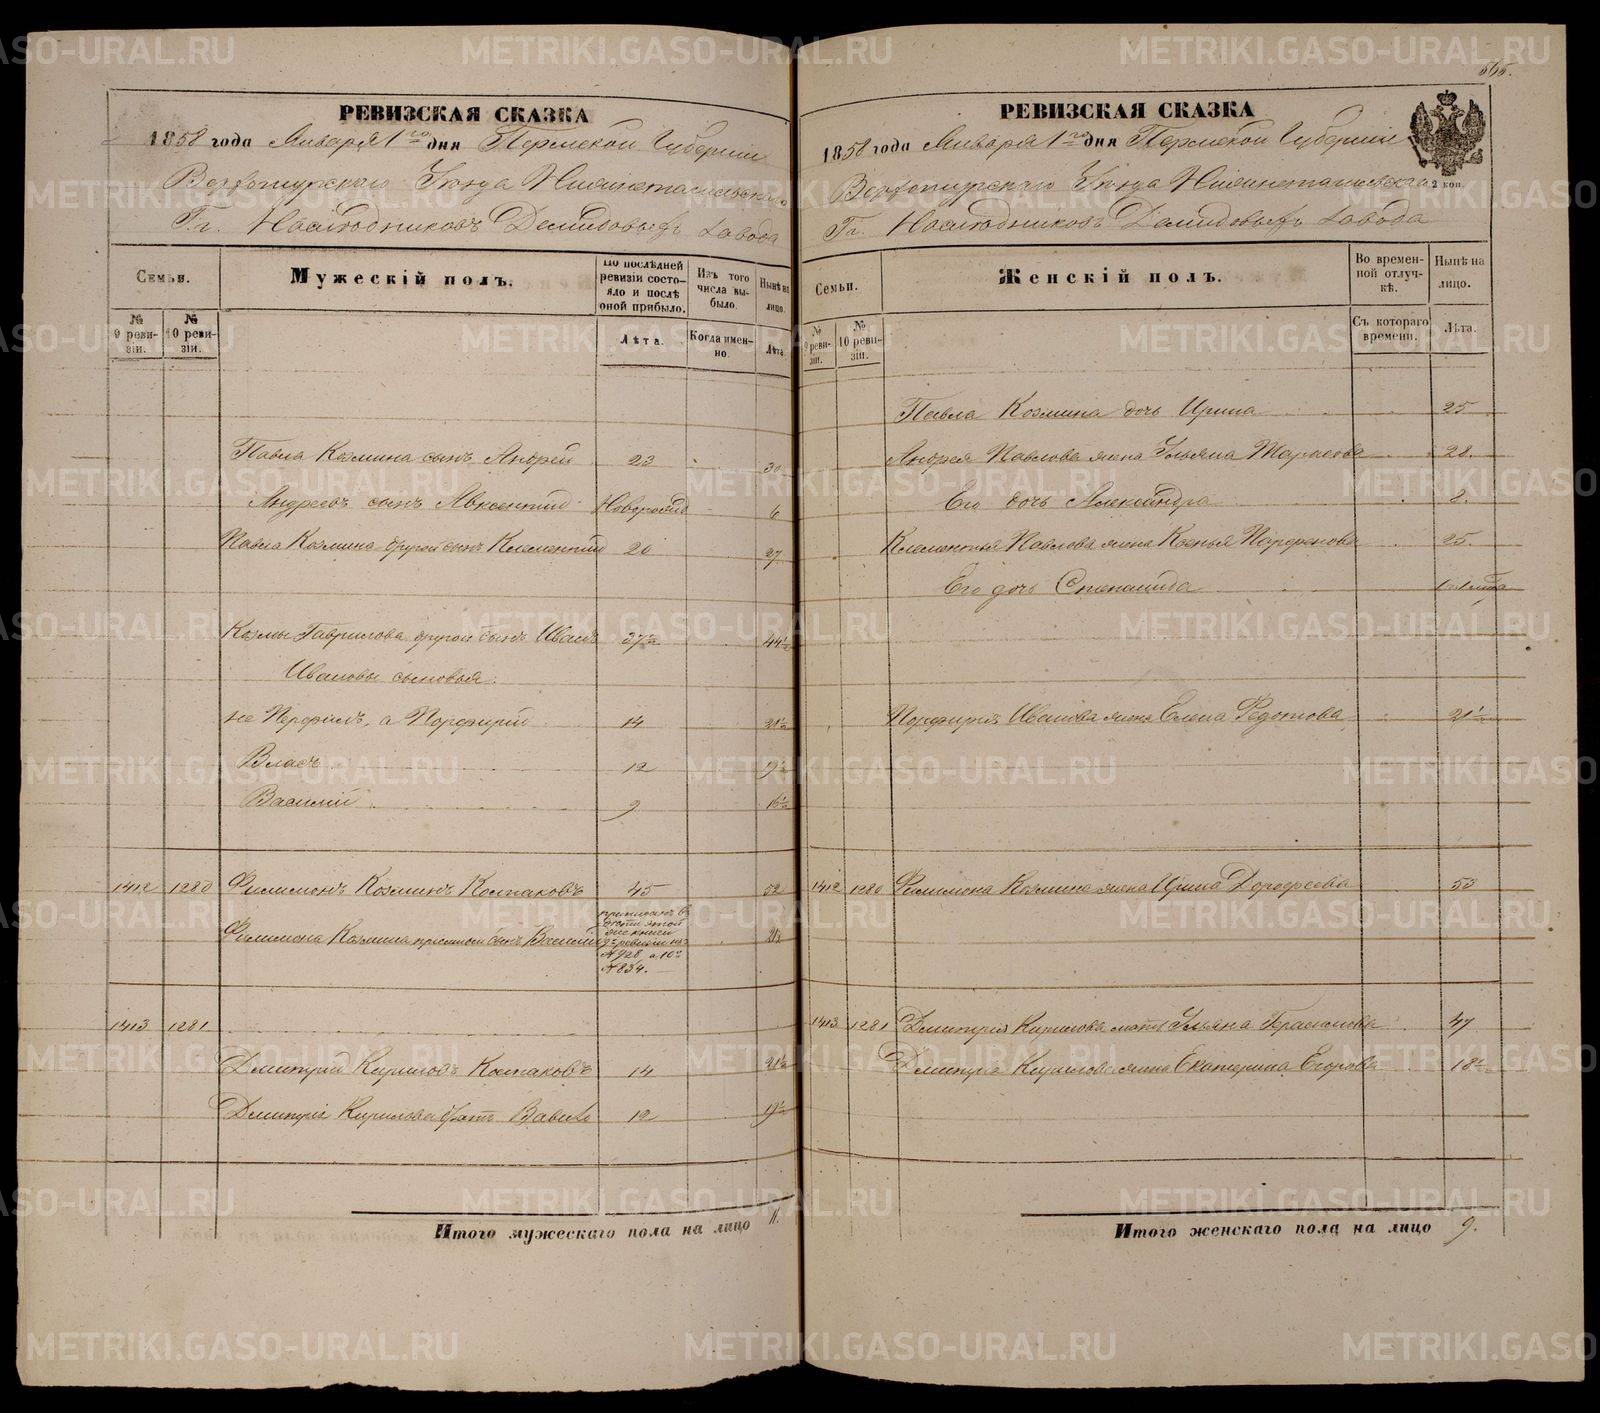 РЕВИЗСКАЯ СКАЗКА
1858 года Января 1го дня Пермской Губернии
Верхотурскаго Уезда Нижнетагильскаго
Гг. Наследниковъ Демидовыхъ завода
Семьи.
Мужескій полъ.
По последней ревизіи состояло и после оной прибыло.
Изъ того числа выбыло.
Ныне на лицо.
№ 9 ревизіи.
№ 10 ревизіи.
Лѣта.
Когда именно.
Лѣта.
Павла Козмина сынъ Андрей 23 30
Андреевъ сынъ Авксентий Новорожд 6
Павла Козмина другой сынъ Климентий 20 27
Козмы Гаврилова другой сынъ Иванъ 37½ 44½
Ивановы сыновья:
не Перфилъ, а Порфирий 14 21½
Власъ 12 19½
Василий 9 16½
1412 1280 Филимонъ Козминъ Колпаковъ 45 52
Филимона Козмина приемной сынъ Василий 21½
№ 928 а 10й
№ 834.
1413 1281
Дмитрий Кириловъ Колпаковъ 14 21½
Дмитрия Кирилова братъ Вавило 12 19½
Итого мужескаго пола на лицо 11.
565.
РЕВИЗСКАЯ СКАЗКА
1858 года Января 1го дня Пермской Губернии
Верхотурскаго Уезда Нижнетагильскаго
2 коп.
Гг. Наследниковъ Демидовыхъ завода
Семьи.
Женскій полъ.
Во временной отлучкѣ.
Нынѣ на лицо.
№ 9 ревизіи.
№ 10 ревизіи.
Съ котораго времени.
Лѣта.
Павла Козмина дочь Ирина 25
Андрея Павлова жена Ульяна Тарасова 28.
Его дочь Александра 2.
Климентья Павлова жена Ксенья Парфенова 25.
Его дочь Степанида
Порфирия Иванова жена Елена Федотова 21½
1412 1280 Филимона Козмина жена Ирина Дорофеева 53
1413 1281 Дмитрия Кирилова мать Ульяна Герасимова 47
Дмитрия Кирилова жена Екатерина Егорова 18½
Итого женскаго пола на лицо 9.
METRIKI.GASO-URAL.RU